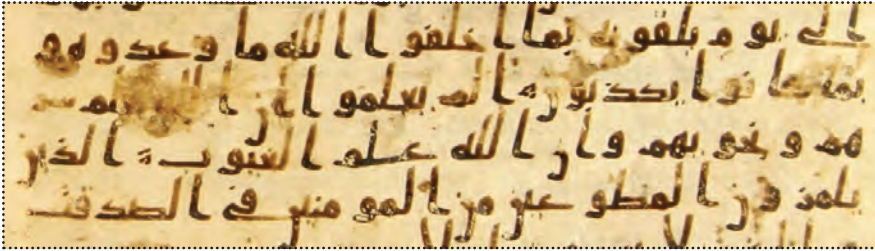 الى يو م يلقو نه بما ا خلفو ا ا لله ما و عدو ه و
بما كا نو ا يكذ بو ن ا لم يعلمو ا ا ن ا لله يعلم سر
هم و نجو يهم و ا ن ا لله علم ا لغيو ب ا لذ ين
يلمز و ن ا لمطو عين من ا لمو منين فى ا لصد قت